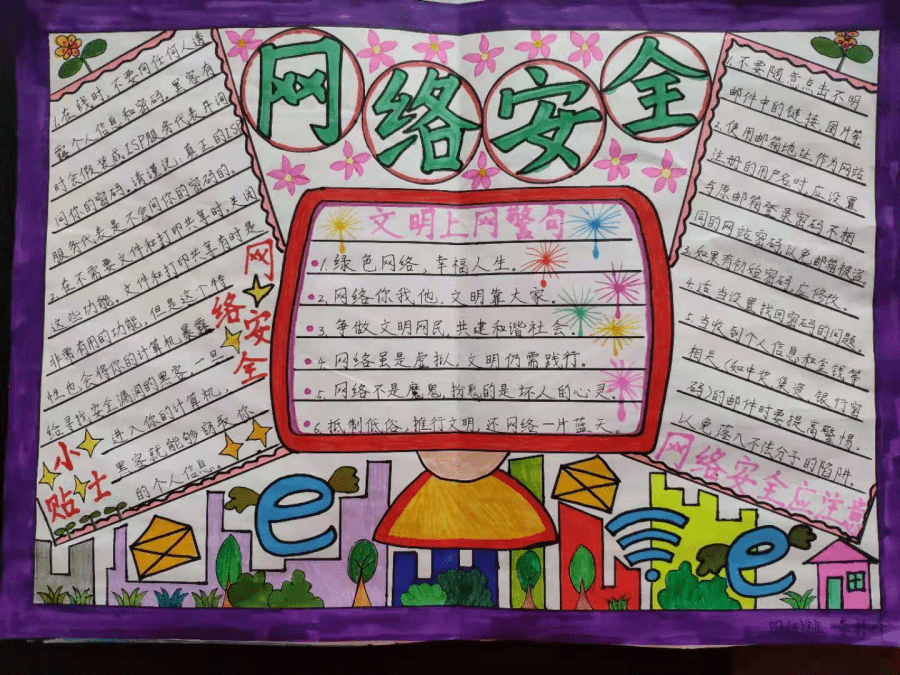 网络安全
1.在线时,不要向任何人透
露个人信息和密码。黑客有
时会假装成ISP服务代表并询
问你的密码。请谨记:真正的ISP
服务代表是不会问你的密码的。
2.在不需要文件和打印共享时,关闭
这些功能。文件和打印共享有时是
非常有用的功能,但是这个特
性也会将你的计算机暴露
给寻找安全漏洞的黑客。一旦
进入你的计算机,
黑客就能够窃取你
的个人信息。
网络安全
小贴士
文明上网警句
1.绿色网络,幸福人生。
2.网络你我他,文明靠大家。
3.争做文明网民,共建和谐社会。
4.网络虽是虚拟,文明仍需践行。
5.网络不是魔鬼,扮恶的是坏人的心灵。
6.抵制低俗,推行文明,还网络一片蓝天。
1.不要随意点击不明
邮件中的链接、图片等
2.使用邮箱地址作为网站
注册的用户名时,应设置
与原邮箱登录密码不相
同的网站密码,以免邮箱被盗。
3.如果有初始密码,应修改。
4.适当设置找回密码的问题。
5.当收到个人信息和金钱等
相关(如中奖、集资、银行密
码)的邮件时要提高警惕。
以免落入不法分子的陷阱。
网络安全应注意
e
e